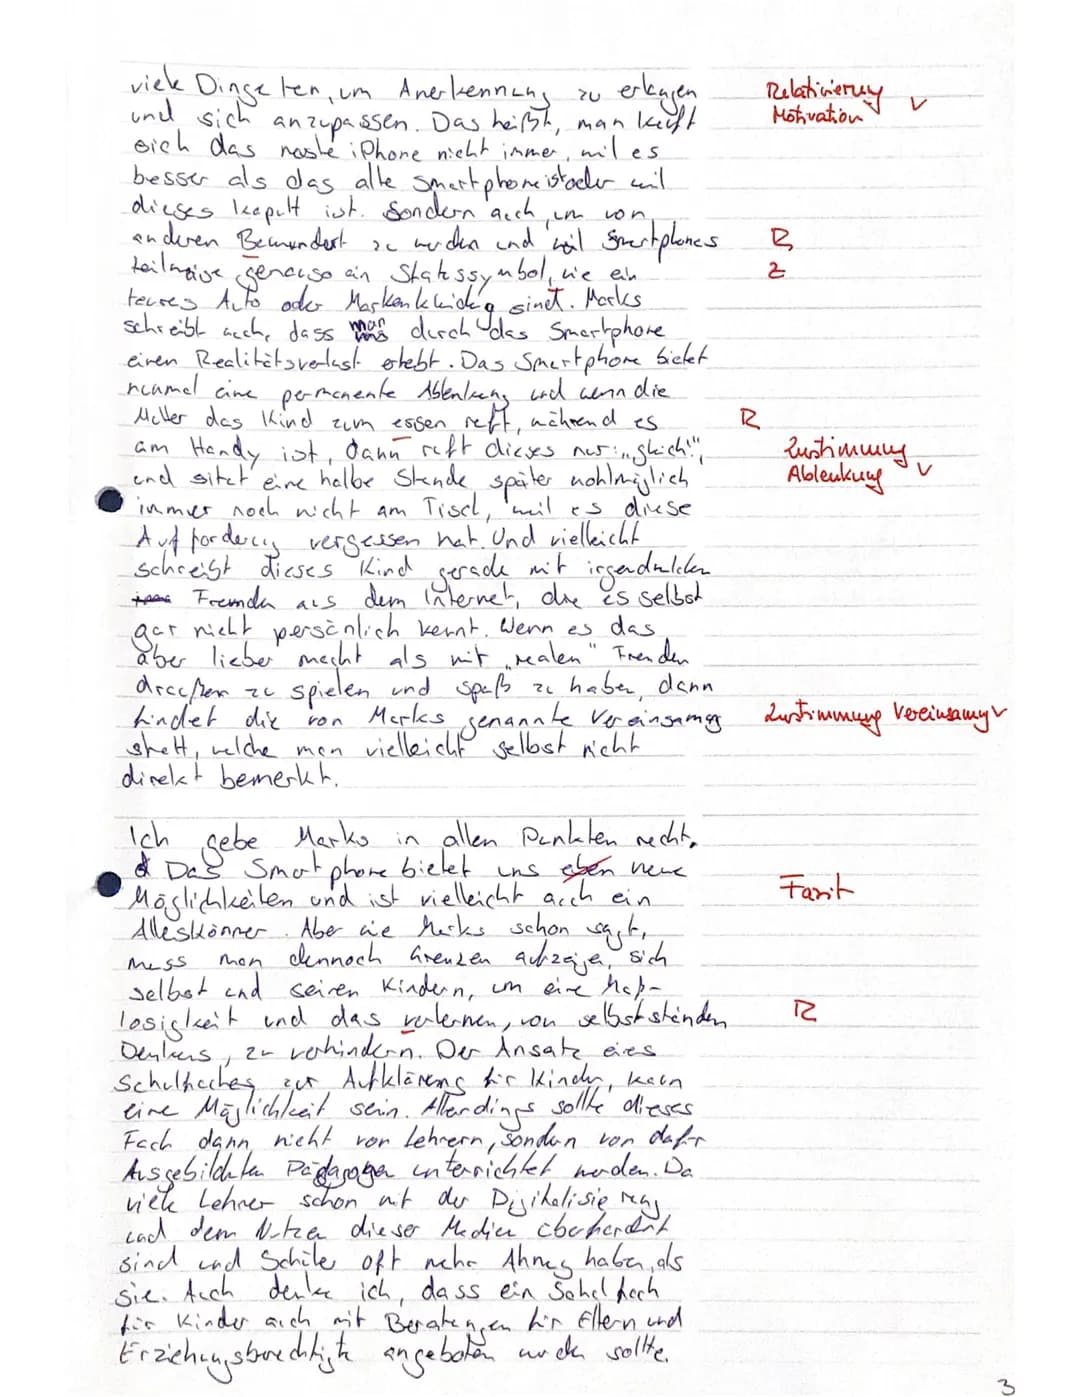 viele Dinge tun, um Anerkennung zu erlangen
und sich anzupassen. Das heißt, man kauft
sich das neuste iPhone nicht immer, weil es
besser als das alte Smartphone ist oder weil
dieses kaputt ist. Sondern auch, um von
anderen Bewundert zu werden und weil Smartphones
teilweise genauso ein Statussymbol, wie ein
teures Auto oder Markenkleidung sind. Marks
schreibt auch, dass man durch das Smartphone
einen Realitätsverlust erlebt. Das Smartphone bietet
nunmal eine permanente Ablenkung und wenn die
Mutter das Kind zum essen ruft, während es
am Handy ist, dann ruft dieses nur: „gleich!",
und sitzt eine halbe Stunde später wohlmöglich
immer noch nicht am Tisch, weil es diese
Aufforderung vergessen hat. Und vielleicht
schreibt dieses Kind gerade mit irgendwelchen
Fremden aus dem Internet, die es selbst
gar nicht persönlich kennt. Wenn es das
aber lieber macht als mit „realen" Freunden
draußen zu spielen und spaß zu haben, dann
findet die von Marks genannte Vereinsamung
statt, welche man vielleicht selbst nicht
direkt bemerkt.
Ich gebe Marks in allen Punkten recht.
Das Smartphone bietet uns eben neue
Möglichkeiten und ist vielleicht auch ein
Alleskönner. Aber wie Marks schon sagt,
muss man dennoch Grenzen aufzeigen, sich
selbst und seinen Kindern, um eine Maß-
losigkeit und das verlernen, von selbstständen
Denkens, zu verhindern. Der Ansatz eines
Schulfaches zur Aufklärung für Kinder, kann
eine Möglichkeit sein. Allerdings sollte dieses
Fach dann nicht von Lehrern, sondern von dafür
Ausgebildeten Pädagogen unterrichtet werden. Da
viele Lehrer schon mit der Digitalisierung
und dem Nutzen dieser Medien überfordert
sind und Schüler oft mehr Ahnung haben, als
sie. Auch denke ich, dass ein Schulfach
für Kinder auch mit Beratungen für Eltern und
Erziehungsberechtigte angeboten werden sollte.
Relativierung
Motivation ✓
R
Z
R
Zustimmung
Ablenkung ✓
Zustimmung Vereinsamung ✓
Fazit
R
3